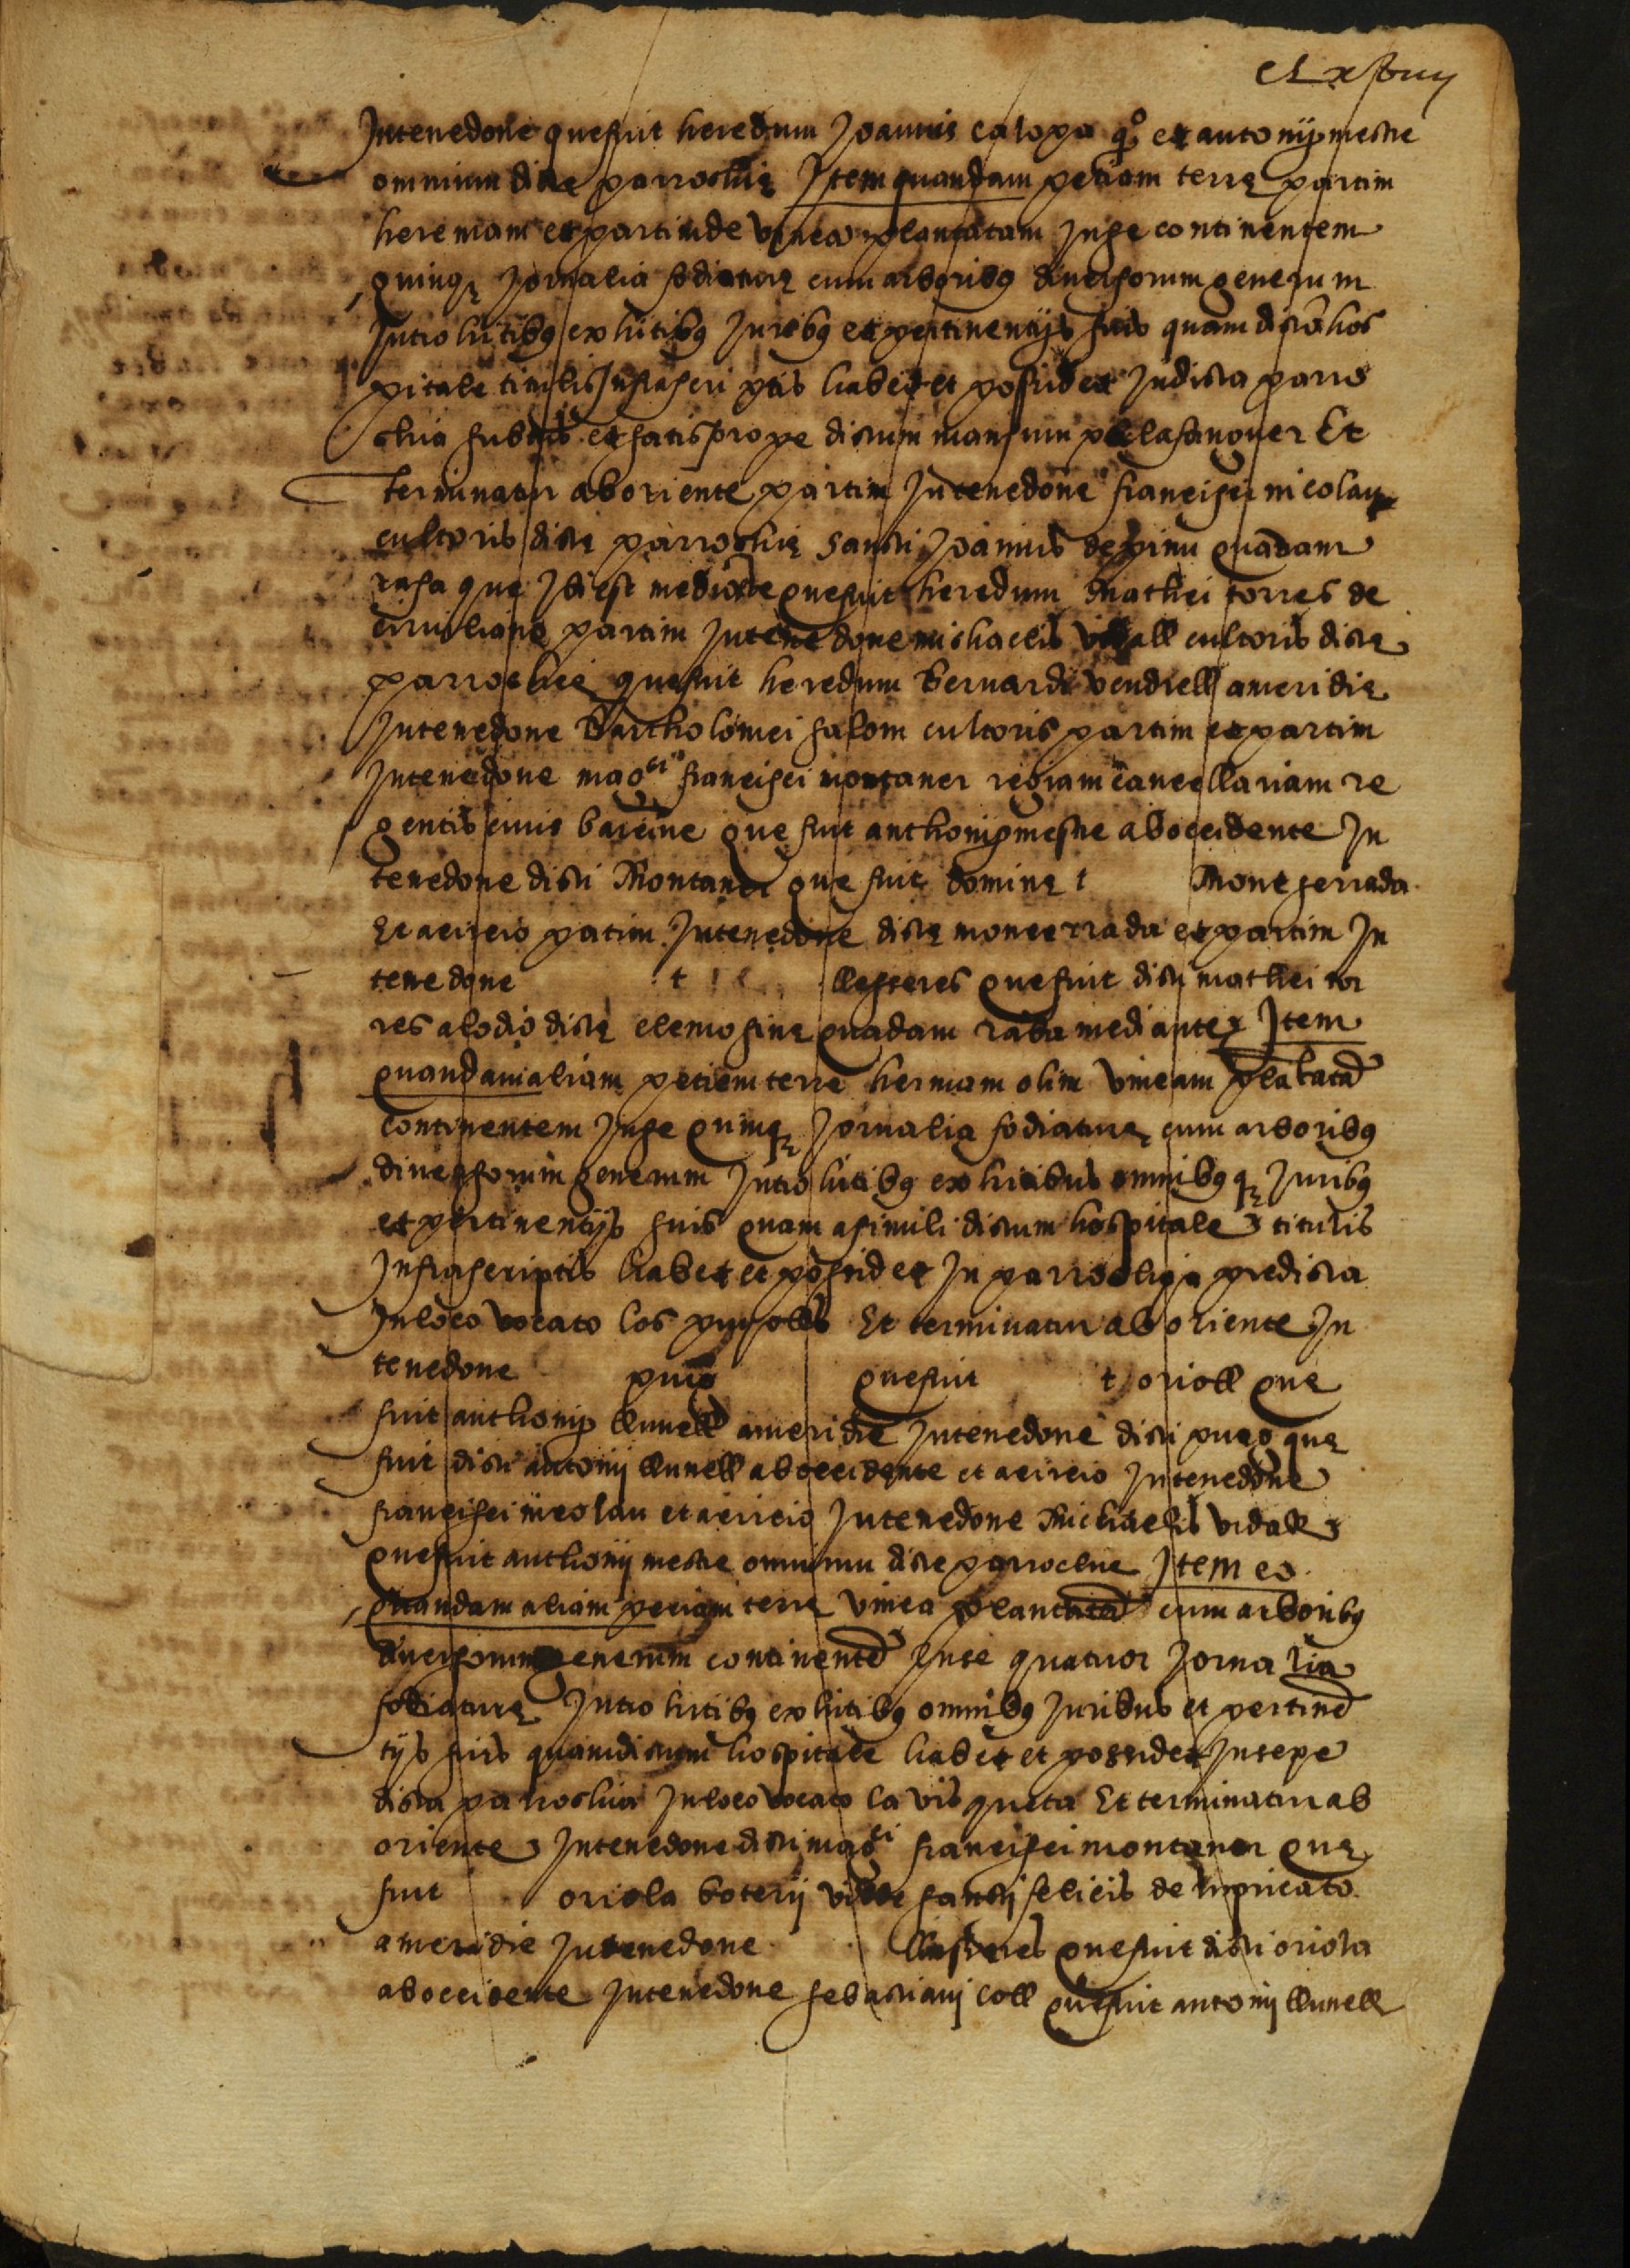 Intenedone que fuit heredum Joannis calopa q° et antonij mestre
omnium dicte parrochie Item quandam petiam terrę partim
heremam et partim de vinea plantatam Inse continentem
quinqȝ Jornalia fodiature cum arboribȝ diversorum generum
Introhitibȝ exhitibȝ Juribȝ et pertinentijs suis quam dictū hos
pitale titulis Infrascriptis habet et possidet Indicta parro
chia subtus et satis prope dictum mansum
terminatur aboriente partim Intenedone francisci nicolau
cultoris dictę parrochię Sancti Joannis depinu quadam
rasa que Ibi est mediante que fuit heredum Mathei torres de
partim Intenedone michaelis vidall cultoris dictę
parrochię que fuit heredum Bernardi vendrell ameridie
Intenedone Bartholomei salom cultoris partim et partim
Intenedone mag<sup>ci</sup> francisci montaner regiam cancellariam re
gentis civis barcīne que fuit anthonij mestre aboccidente In
tenedone dicti Montaner que fuit dominę t Montserrada
Et acircio partim Intenedone dictę moncerrada et partim In
tenedone t llesteres que fuit dicti mathei tor
res alodio dictę elemosinę quadam rasa mediante Item
quandam aliam petiem terre hermam olim vineam plātatā
continentem Inse quinqȝ Jornalia fodiaturę cum arboribȝ
diversorum generum Introhitibȝ exhitibus omnibȝqȝ Juribȝ
et pertinentijs suis quam asimili dictum hospitale titulis
Infrascriptis habet et possidet In parrochia predicta
Inloco vocato los Et terminatur ab oriente In
tenedone puig que fuit t orioll que
fuit anthonij llunell ameridie Intenedone dicti puig que
fuit dicti antonij llunell aboccidente et acircio Intenedone
francisci nicolau et acircio Intenedone Michaelis vidall
que fuit anthonij mestre omnium dicte parrochie Item et
quandam aliam petiam terrę vinea plantatā cum arboribȝ
diversorum generum continentē Inse quatuor Jornalia
fodiaturę Introhitibȝ exhitibȝ omnibȝ Juribus et pertinē
tijs suis quam dictum hospitale habet et possidet Insepe
dicta parrochia Inloco vocato la Et terminatur ab
oriente Intenedone dicti mag<sup>ci</sup> francisci montaner que
fuit oriola boterij ville sancti felicis de lupricato
ameridie Intenedone llesteres que fuit dicti oriola
aboccidente Intenedone sebastiani coll que fuit antonij llunell